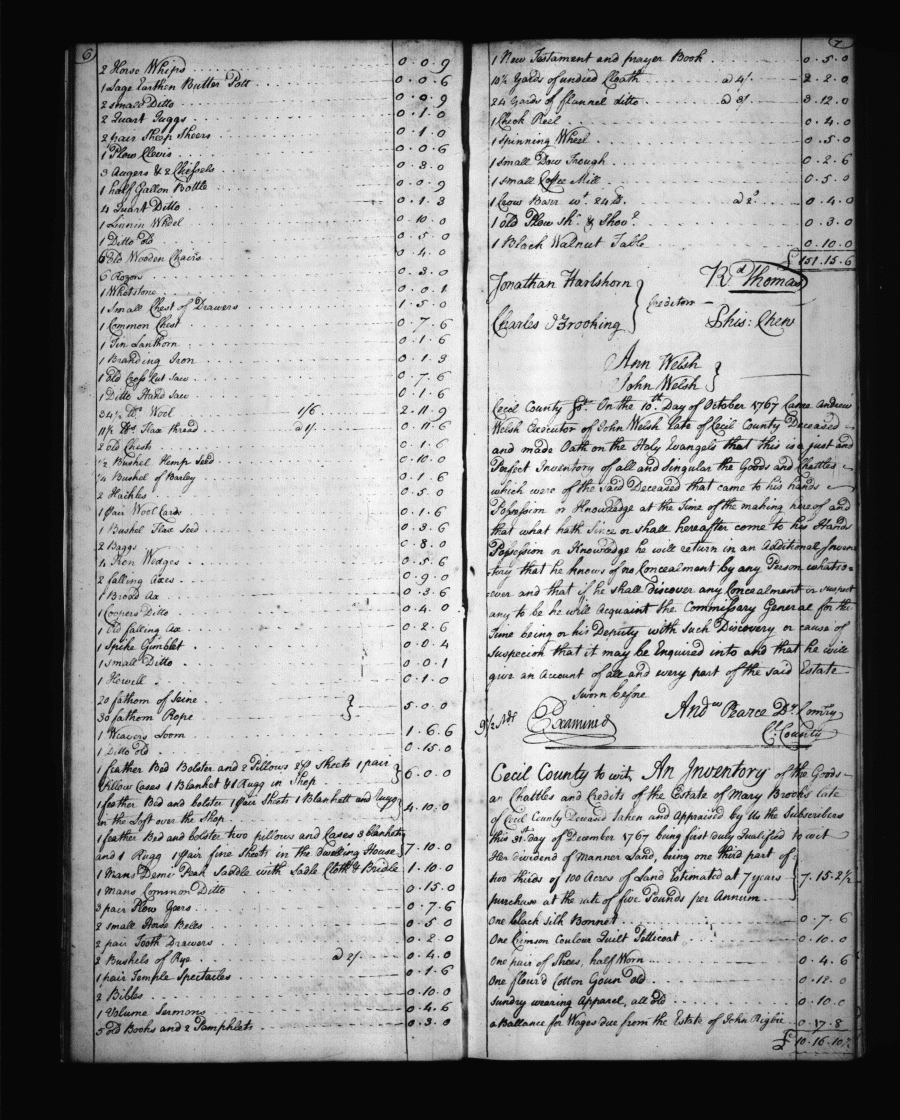 6
2 Horse Whips 0.0.9
1 Lage Earthen Butter Pott 0.0.6
2 small Ditto 0.0.9
2 Quart Juggs 0.1.0
2 pair Sheep Sheers 0.1.0
1 Plow Clevis 0.0.6
3 Augers & 2 Chessels 0.3.0
1 half Gallon Bottle 0.0.9
4 Quart Ditto 0.1.3
1 Linnin Wheel 0.10.0
1 Ditto old 0.5.0
6 old Wooden Chairs 0.4.0
6 Rozors 0.3.0
1 Whetstone 0.0.1
1 Small Chest of Drawers 1.5.0
1 Common Chest 0.7.6
1 Tin Lanthorn 0.1.6
1 Branding Iron 0.1.3
1 old Cross Cut saw 0.7.6
1 Ditto Hand saw 0.1.6
34½ lbs Wool 1/6 2.11.9
11½ lbs Flax thread a 1/ 0.11.6
2 old Chests 0.1.6
½ Bushel Hemp seed 0.10.0
¼ Bushel of Barley 0.1.6
2 Hackles 0.5.0
1 pair Wool Cards 0.1.6
1 Bushel Flax seed 0.3.6
2 Baggs 0.8.0
4 Iron Wedges 0.5.6
2 falling Axes 0.9.0
1 Broad Ax 0.3.6
1 Coopers Ditto 0.4.0
1 Old falling Ax 0.2.6
1 Spike Gimblet 0.0.4
1 small Ditto 0.0.1
1 Howell 0.1.0
20 fathom of seine
30 fathom Rope 5.0.0
1 Weavers Loom 1.6.6
1 Ditto old 0.15.0
1 feather Bed Bolster and 2 Pillows 2 Sheets 1 pair
Pillow Cases 1 Blanket & 1 Rugg in Shop 6.0.0
1 feather Bed and bolster 1 pair Sheets 1 Blankett and Rugg
in the Loft over the Shop 4.10.0
1 feather Bed and bolster two pillows and Cases 3 blankets
and 1 Rugg 1 pair fine Sheets in the dwelling House 7.10.0
1 Mans Demi Peak Saddle with Sadle Cloth & Bridle 1.10.0
1 mans Common Ditto 0.15.0
3 pair Plow Geers 0.7.6
2 small Horse Beles 0.5.0
2 pair Tooth Drawers 0.2.0
2 Bushels of Rye a 2/ 0.4.0
1 pair Temple Spectacles 0.1.6
2 Bibles 0.10.0
1 Volume Sermons 0.4.6
5 old Books and 2 Pamphlets 0.3.0
7
1 New Testament and prayer Book 0.5.0
10½ Yards of undied Cloath a 4/ 2.2.0
24 Yards of flannel ditto a 3/ 3.12.0
1 Check Reel 0.4.0
1 spinning Wheel 0.5.0
1 small Dow Trough 0.2.6
1 small Coffee Mill 0.5.0
1 Crow Barr wt. 24 lb. a 2d 0.4.0
1 old Plow shr. & Shovl 0.3.0
1 Black Walnut Table 0.10.0
£ 151.15.6
Jonathan Hartshorn
Charles Brooking
Creditors
Rd Thomas
Phis: Chew
Ann Welsh
John Welsh
Cecil County Sst. On the 10th. Day of October 1767 Came Andrew
Welsh Executor of John Welsh late of Cecil County Deceased
and made Oath on the Holy Evangels that this is a just and
Perfect Inventory of all and singular the Goods and Chattles
which were of the said Deceased that came to his hands
Possession or Knowledge at the Time of the making hereof and
that what hath since or shall hereafter come to his Hands
Possession or Knowledge he will return in an Additional Inven
tory that he knows of no Concealment by any Person whatso
ever and that if he shall discover any Concealment or suspect
any to be he will Acquaint the Commissary General for the
Time being or his Deputy with such Discovery or cause of
Suspecion that it may be Enquired into and that he will
give an Account of all and every part of the said Estate
Sworn before
9½ Sds Examined
Andw Pearce Dy. Comry
Cl. County
Cecil County to wit, An Inventory of the Goods
an Chattles and Credits of the Estate of Mary Brooks late
of Cecil County Deceased taken and Appraised by Us the Subscribers
this 31st day of December 1767 being first duly Qualified to wit
Her dividend of Manner Land, being one third part of
two thirds of 100 Acres of Land Estimated at 7 years
purchase at the rate of five Pounds per Annum 7.15.2½
One black silk Bonnet 0.7.6
One Crimson Coulour Quilt Petticoat 0.10.0
One pair of Shoes, half Worn 0.4.6
One flour'd Cotton Goun old 0.12.0
Sundry wearing Apparel, all old 0.10.0
a Ballance for Wages due from the Estate of John Rigbie 0.17.8
£ 10.16.10½